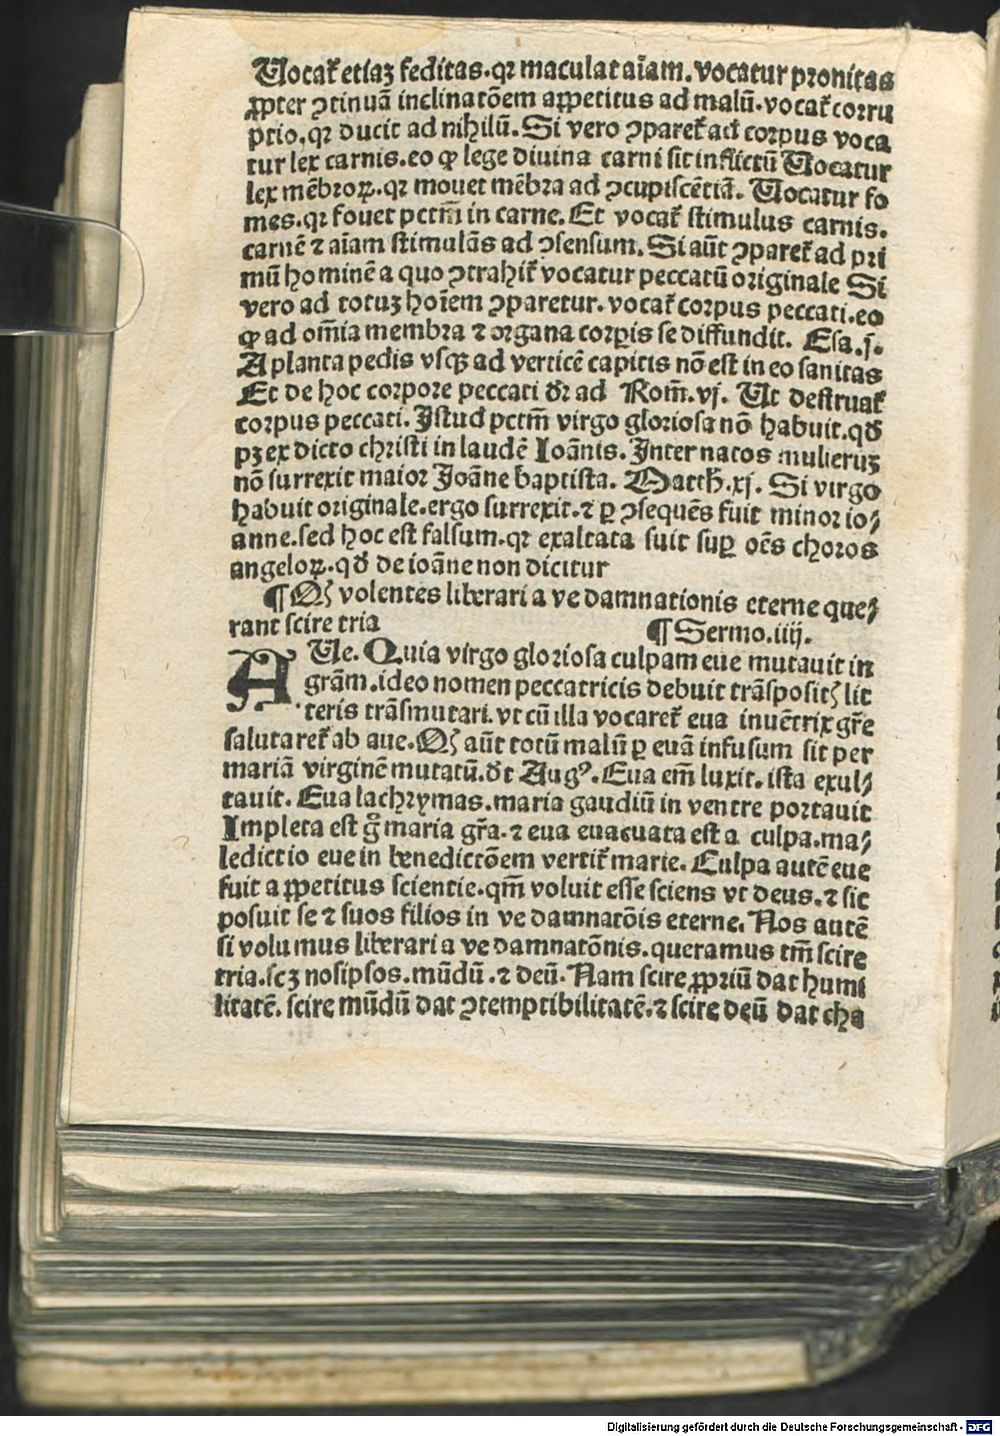 Vocat᷑ etiaꝫ feditas.qꝛ maculat aīam.vocatur pꝛonitas
ꝓpter ꝯtinuā inclinatōem appetitus ad malū.vocat᷑ coꝛru
ptio.qꝛ ducit ad nihilū.Si vero ꝯparet᷑ ad coꝛpus voca
tur lex carnis.eo ꝙ lege diuina carni sit inflictū Uocatur
lex mēbroꝝ.qꝛ mouet mēbra ad ꝯcupiscētiā. Uocatur fo
mes.qꝛ fouet pctm̄ in carne.Et vocat᷑ stimulus carnis.
carnē ⁊ aīam stimulās ad ꝯsensum.Si aūt ꝯparet᷑ ad pꝛi
mū hominē a quo ꝯtrahit᷑ vocatur peccatū oꝛiginale Si
vero ad totuꝫ hoīem ꝯparetur.vocat᷑ coꝛpus peccati.eo
ꝙ ad om̄ia membra ⁊ oꝛgana coꝛpis se diffundit. Esa.j.
A planta pedis vsqꝫ ad verticē capitis nō est in eo sanitas
Et de hoc coꝛpoꝛe peccati dꝛ ad Rom̄.vj. Ut destruat᷑
coꝛpus peccati.Istud pctm̄ virgo gloꝛiosa nō habuit.qđ
pꝫ ex dicto chꝛisti in laudē Ioānis.Inter natos mulieruꝫ
nō surrexit maioꝛ Joāne baptista. Matth̄.xj. Si virgo
habuit oꝛiginale.ergo surrexit.⁊ ꝑ ꝯsequēs fuit minoꝛ io⸗
anne.sed hoc est falsum.qꝛ exaltata fuit suꝑ oēs choꝛos
angeloꝝ.qđ de ioāne non dicitur
¶ Qꝫ volentes liberari a ve damnationis eterne que⸗
rant scire tria ¶ Sermo.iiij.
AUe. Quia virgo gloꝛiosa culpam eue mutauit in
gr̄am.ideo nomen peccatricis debuit trāspositꝫ lit
teris trāsmutari.vt cū illa vocaret᷑ eua inuētrix gr̄e
salutaret᷑ ab aue.Qꝫ aūt totū malū ꝑ euā infusum sit per
mariā virginē mutatū.dt Augꝰ.Eua em̄ luxit.ista exul⸗
tauit. Eua lachꝛymas.maria gaudiū in ventre poꝛtauit
Impleta est g° maria gr̄a.⁊ eua euacuata est a culpa.ma⸗
ledictio eue in benedictōem vertit᷑ marie. Culpa autē eue
fuit appetitus scientie.qm̄ voluit esse sciens vt deus.⁊ sic
posuit se ⁊ suos filios in ve damnatōis eterne. Nos autē
si volumus liberari a ve damnatōnis.queramus tm̄ scire
tria.scꝫ nosipsos.mūdū.⁊ deū.Nam scire ꝓpꝛiū dat humi
litatē.scire mūdū dat ꝯtemptibilitatē.⁊ scire deū dat cha
Digitalisierung gefördert durch die Deutsche Forschungsgemeinschaft - DFG